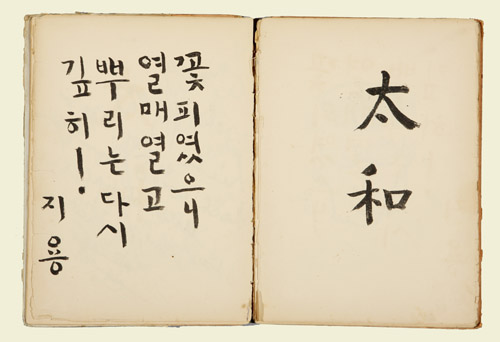 太和
꽃피였으니
열매열고
뿌리는다시
깊히!
지용